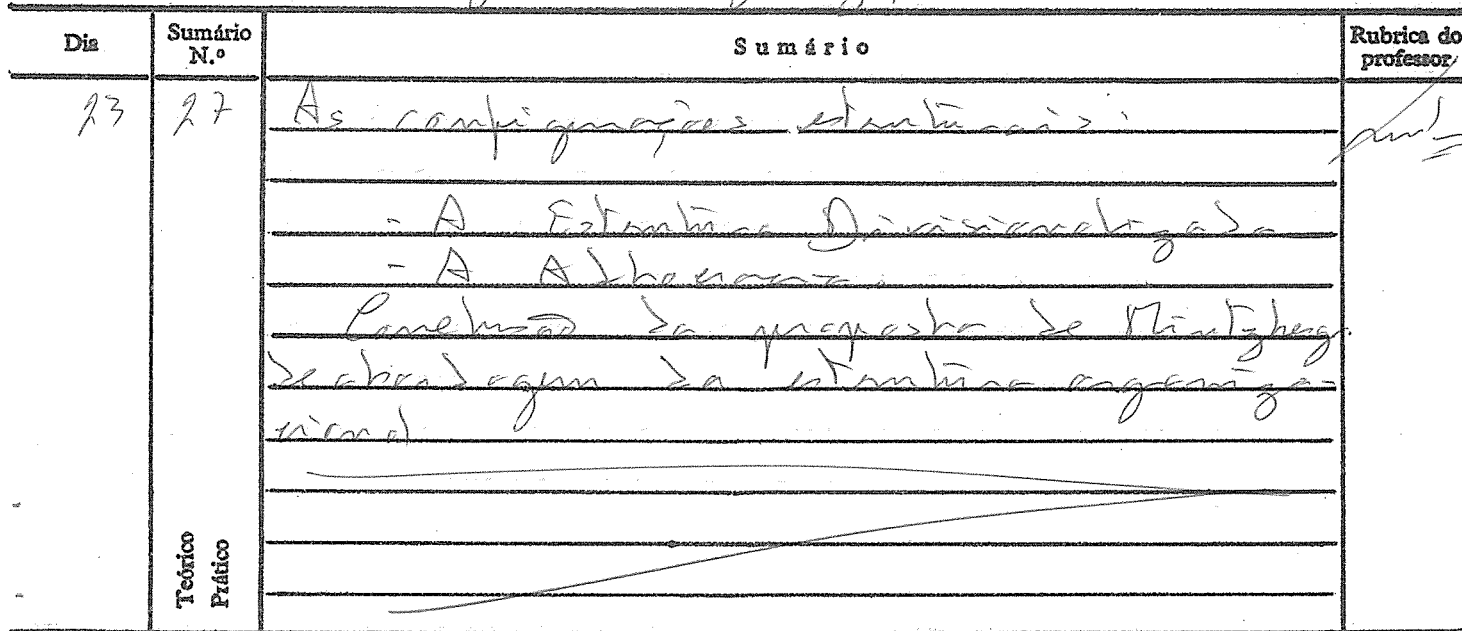 Dia
Sumário N.º
Sumário
Rubrica do professor
23
27
As configurações estruturais:
- A Estrutura Divisionalizada
- A Adhocracia.
Conclusão da proposta de Mintzberg
de abordagem da estrutura organiza-
cional
Teórico
Prático